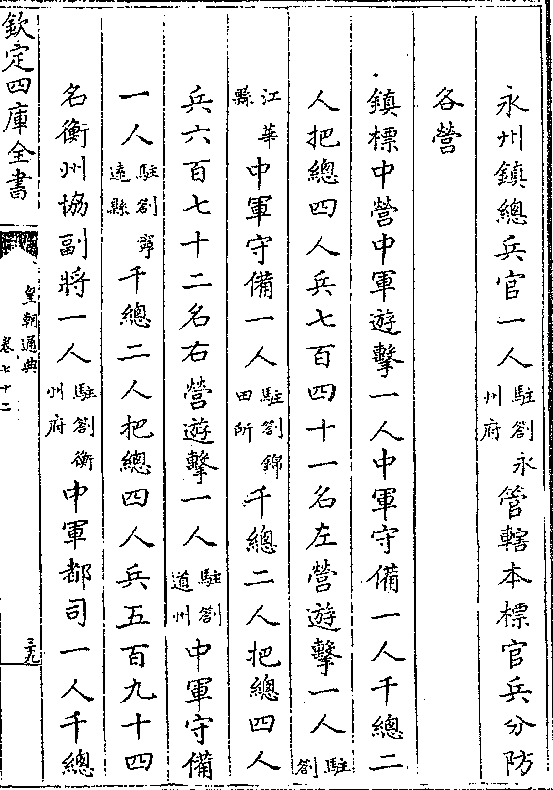 永州鎮總兵官一人駐劄永州府管轄本標官兵分防
各營
鎮標中營中軍遊擊一人中軍守備一人千總二
人把總四人兵七百四十一名左營遊擊一人駐劄
江華縣中軍守備一人駐劄錦田所千總二人把總四人
兵六百七十二名右營遊擊一人駐劄道州中軍守備
一人駐劄寧遠縣千總二人把總四人兵五百九十四
名衡州協副將一人駐劄衡州府中軍都司一人千總
欽定四庫全書
皇朝通典
卷七十二
三九